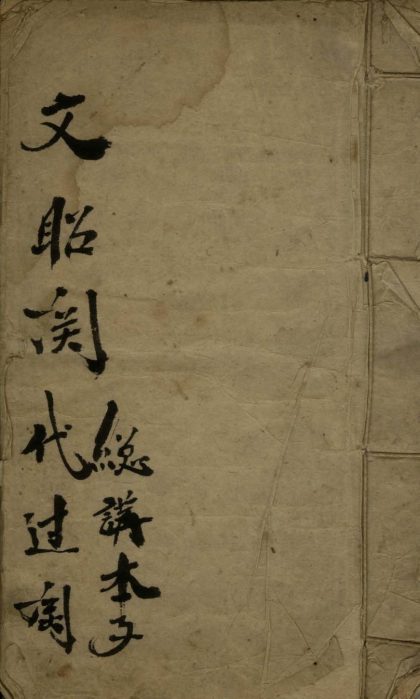 文昭関代过関
總講本子